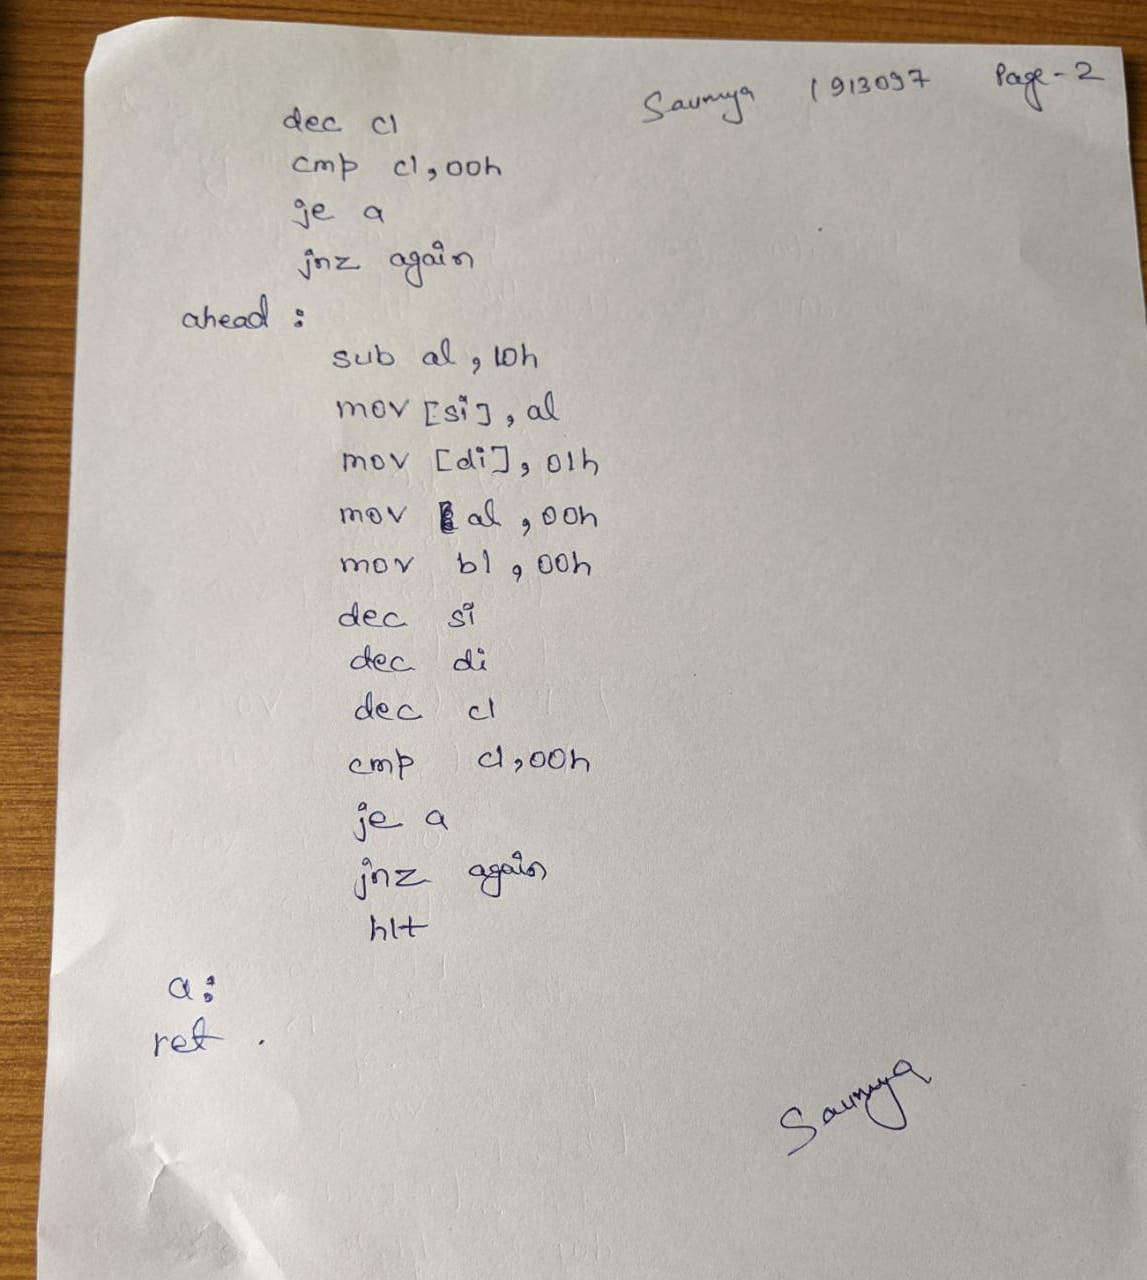 Saumya 1913097 Page-2
dec cl
cmp cl,00h
je a
jnz again
ahead :
sub al, 10h
mov [si], al
mov [di], 01h
mov al, 00h
mov bl, 00h
dec si
dec di
dec cl
cmp cl,00h
je a
jnz again
hlt
a:
ret .
Saumya